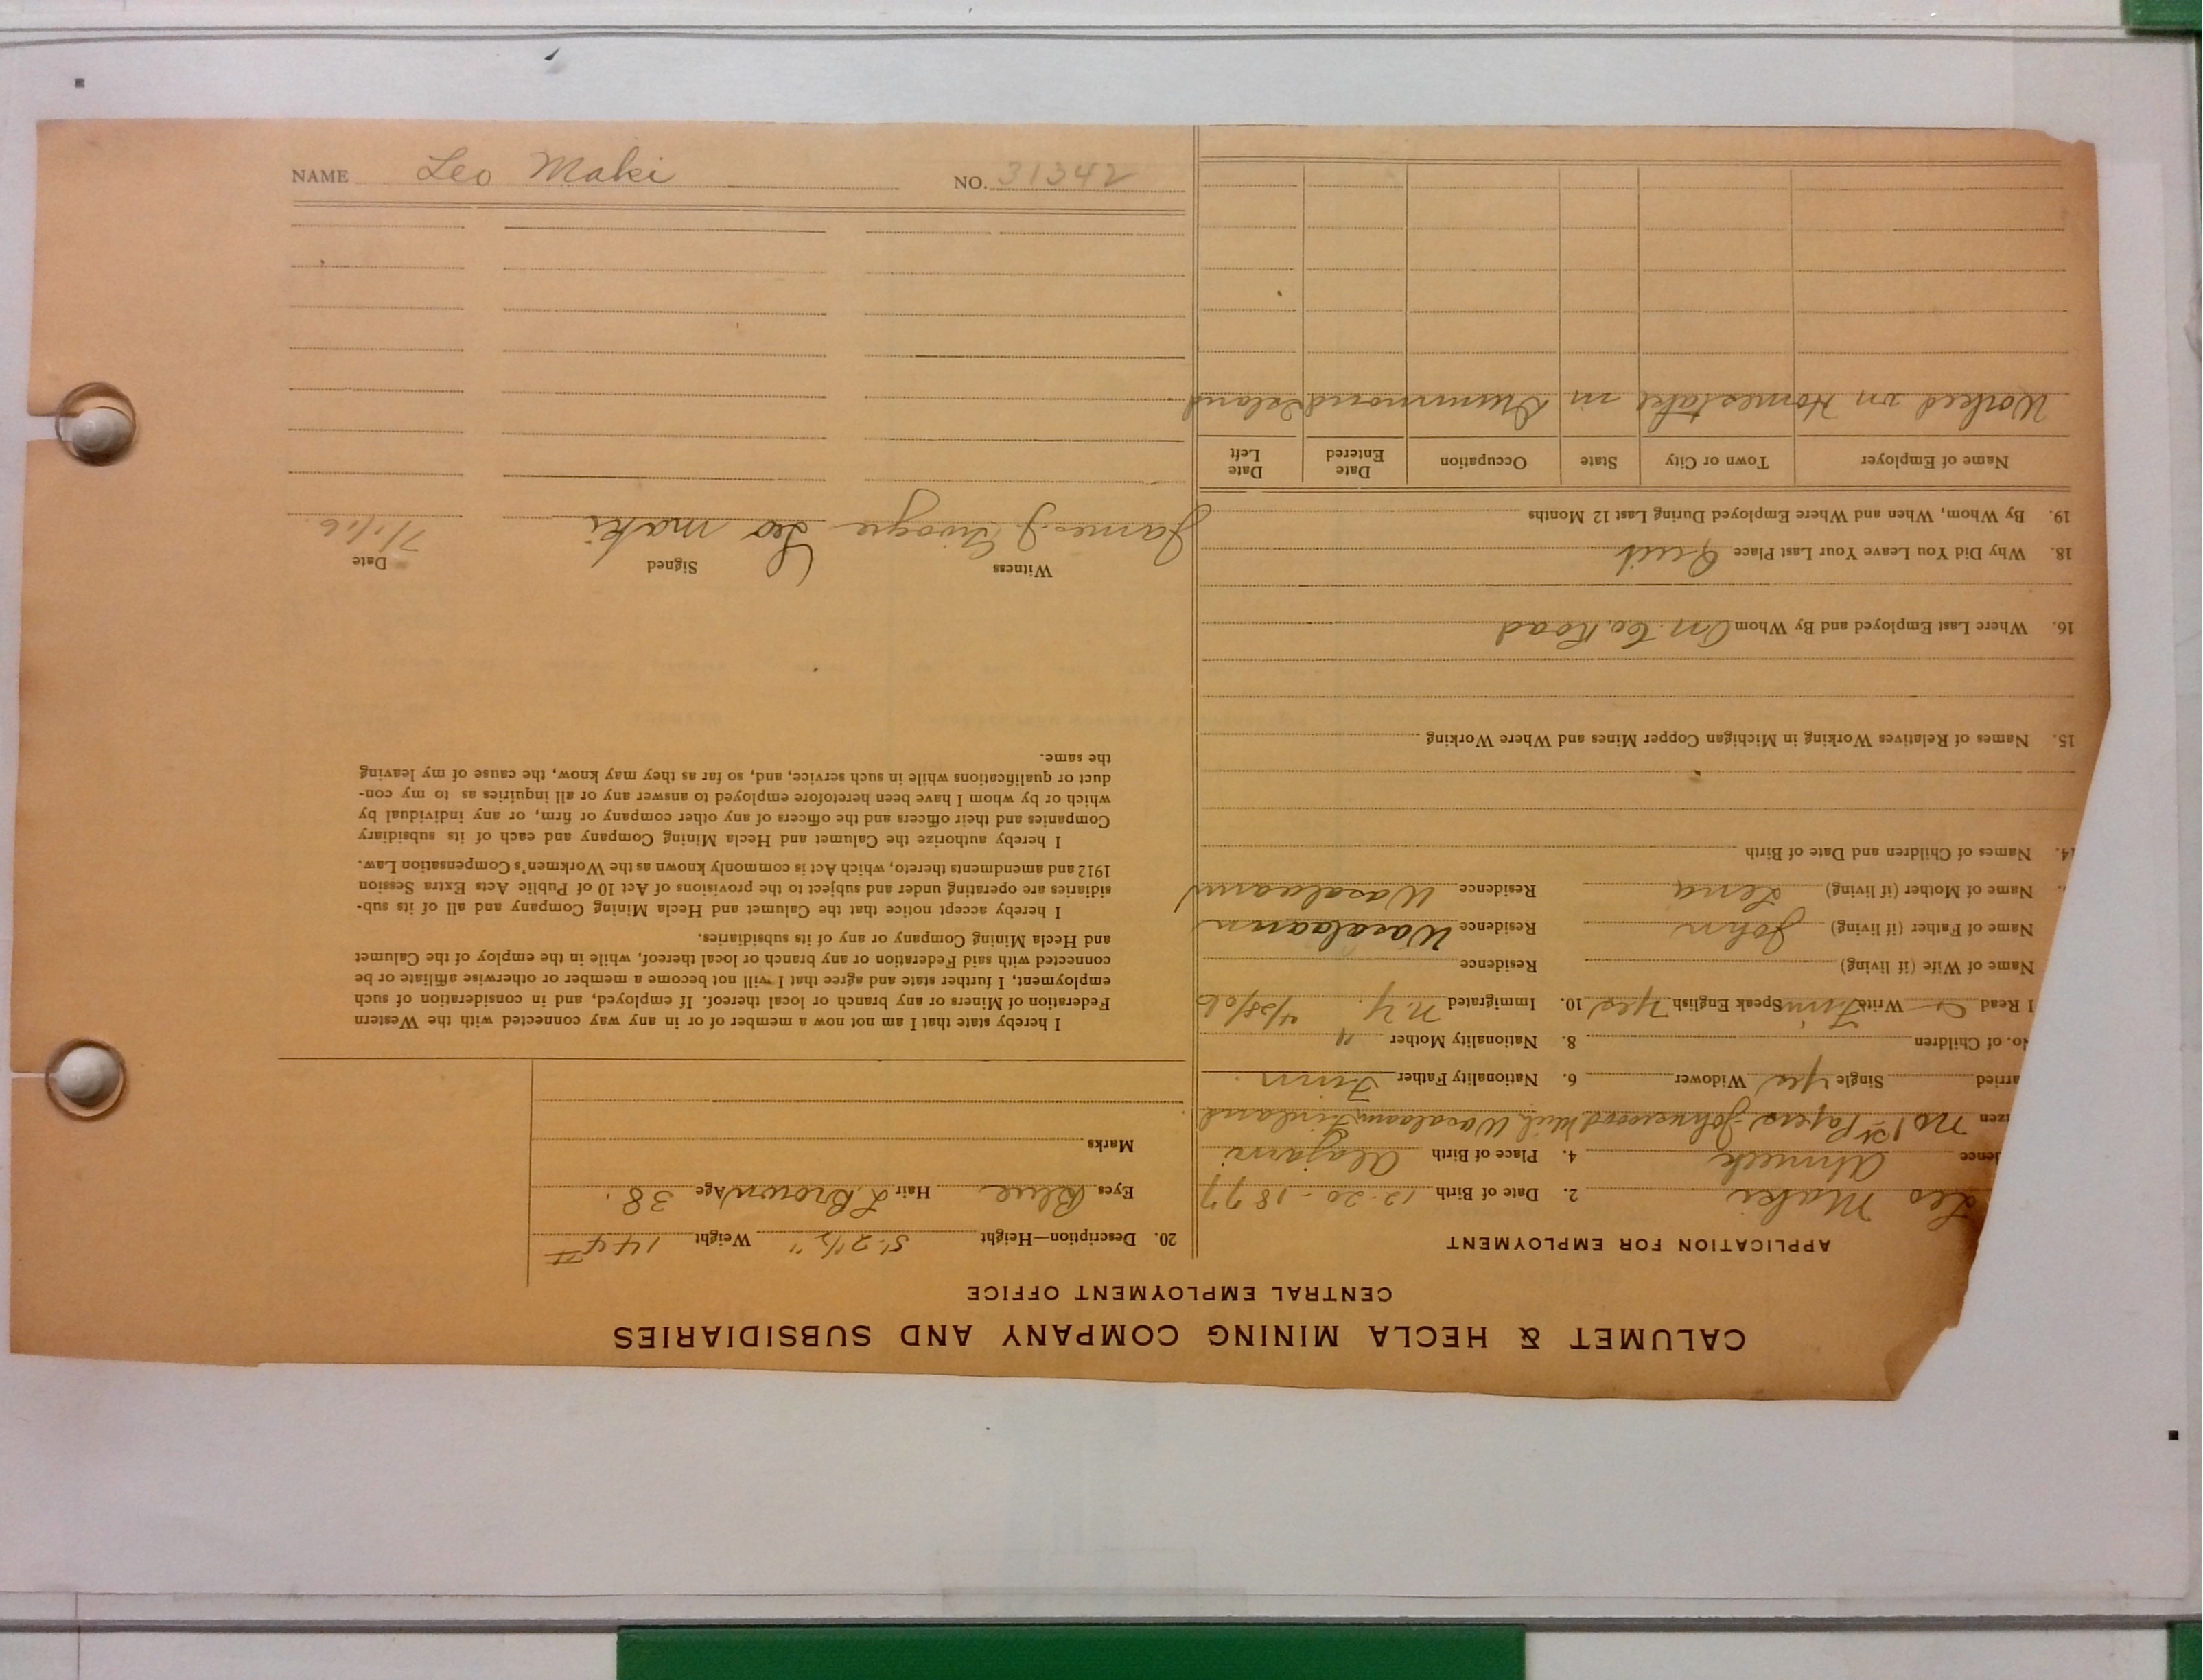 CALUMET & HECLA MINING COMPANY AND SUBSIDIARIES
CENTRAL EMPLOYMENT OFFICE
APPLICATION FOR EMPLOYMENT
Leo Maki 2. Date of Birth 12-20-1877
dence Ahmeek 4. Place of Birth Alajarvi
izen No 1st Papers- Finland
arried Single Yes Widower 6. Nationality Father Finn.
No. of Children 8. Nationality Mother "
I Read Write Finn Speak English Yes 10. Immigrated N.Y.
Name of Wife (if living) Residence
Name of Father (if living) John Residence Wasalaann
Name of Mother (if living) Lena Residence Wasalaann
14. Names of Children and Date of Birth
15. Names of Relatives Working in Michigan Copper Mines and Where Working
16. Where Last Employed and By Whom Co. Road
18. Why Did You Leave Your Last Place Quit
19. By Whom, When and Where Employed During Last 12 Months
Name of Employer Town or City State Occupation Date Entered Date Left
Worked on Homestake in Drummond Island
20. Description—Height 5'-2 1/2" Weight 144 #
Eyes Blue Hair L. Brown Age 38.
Marks
I hereby state that I am not now a member of or in any way connected with the Western
Federation of Miners or any branch or local thereof. If employed, and in consideration of such
employment, I further state and agree that I will not become a member or otherwise affiliate or be
connected with said Federation or any branch or local thereof, while in the employ of the Calumet
and Hecla Mining Company or any of its subsidiaries.
I hereby accept notice that the Calumet and Hecla Mining Company and all of its sub-
sidiaries are operating under and subject to the provisions of Act 10 of Public Acts Extra Session
1912 and amendments thereto, which Act is commonly known as the Workmen's Compensation Law.
I hereby authorize the Calumet and Hecla Mining Company and each of its subsidiary
Companies and their officers and the officers of any other company or firm, or any individual by
which or by whom I have been heretofore employed to answer any or all inquiries as to my con-
duct or qualifications while in such service, and, so far as they may know, the cause of my leaving
the same.
Witness Signed Date
James J. Leo maki 7/1/16.
NAME Leo Maki NO. 31342